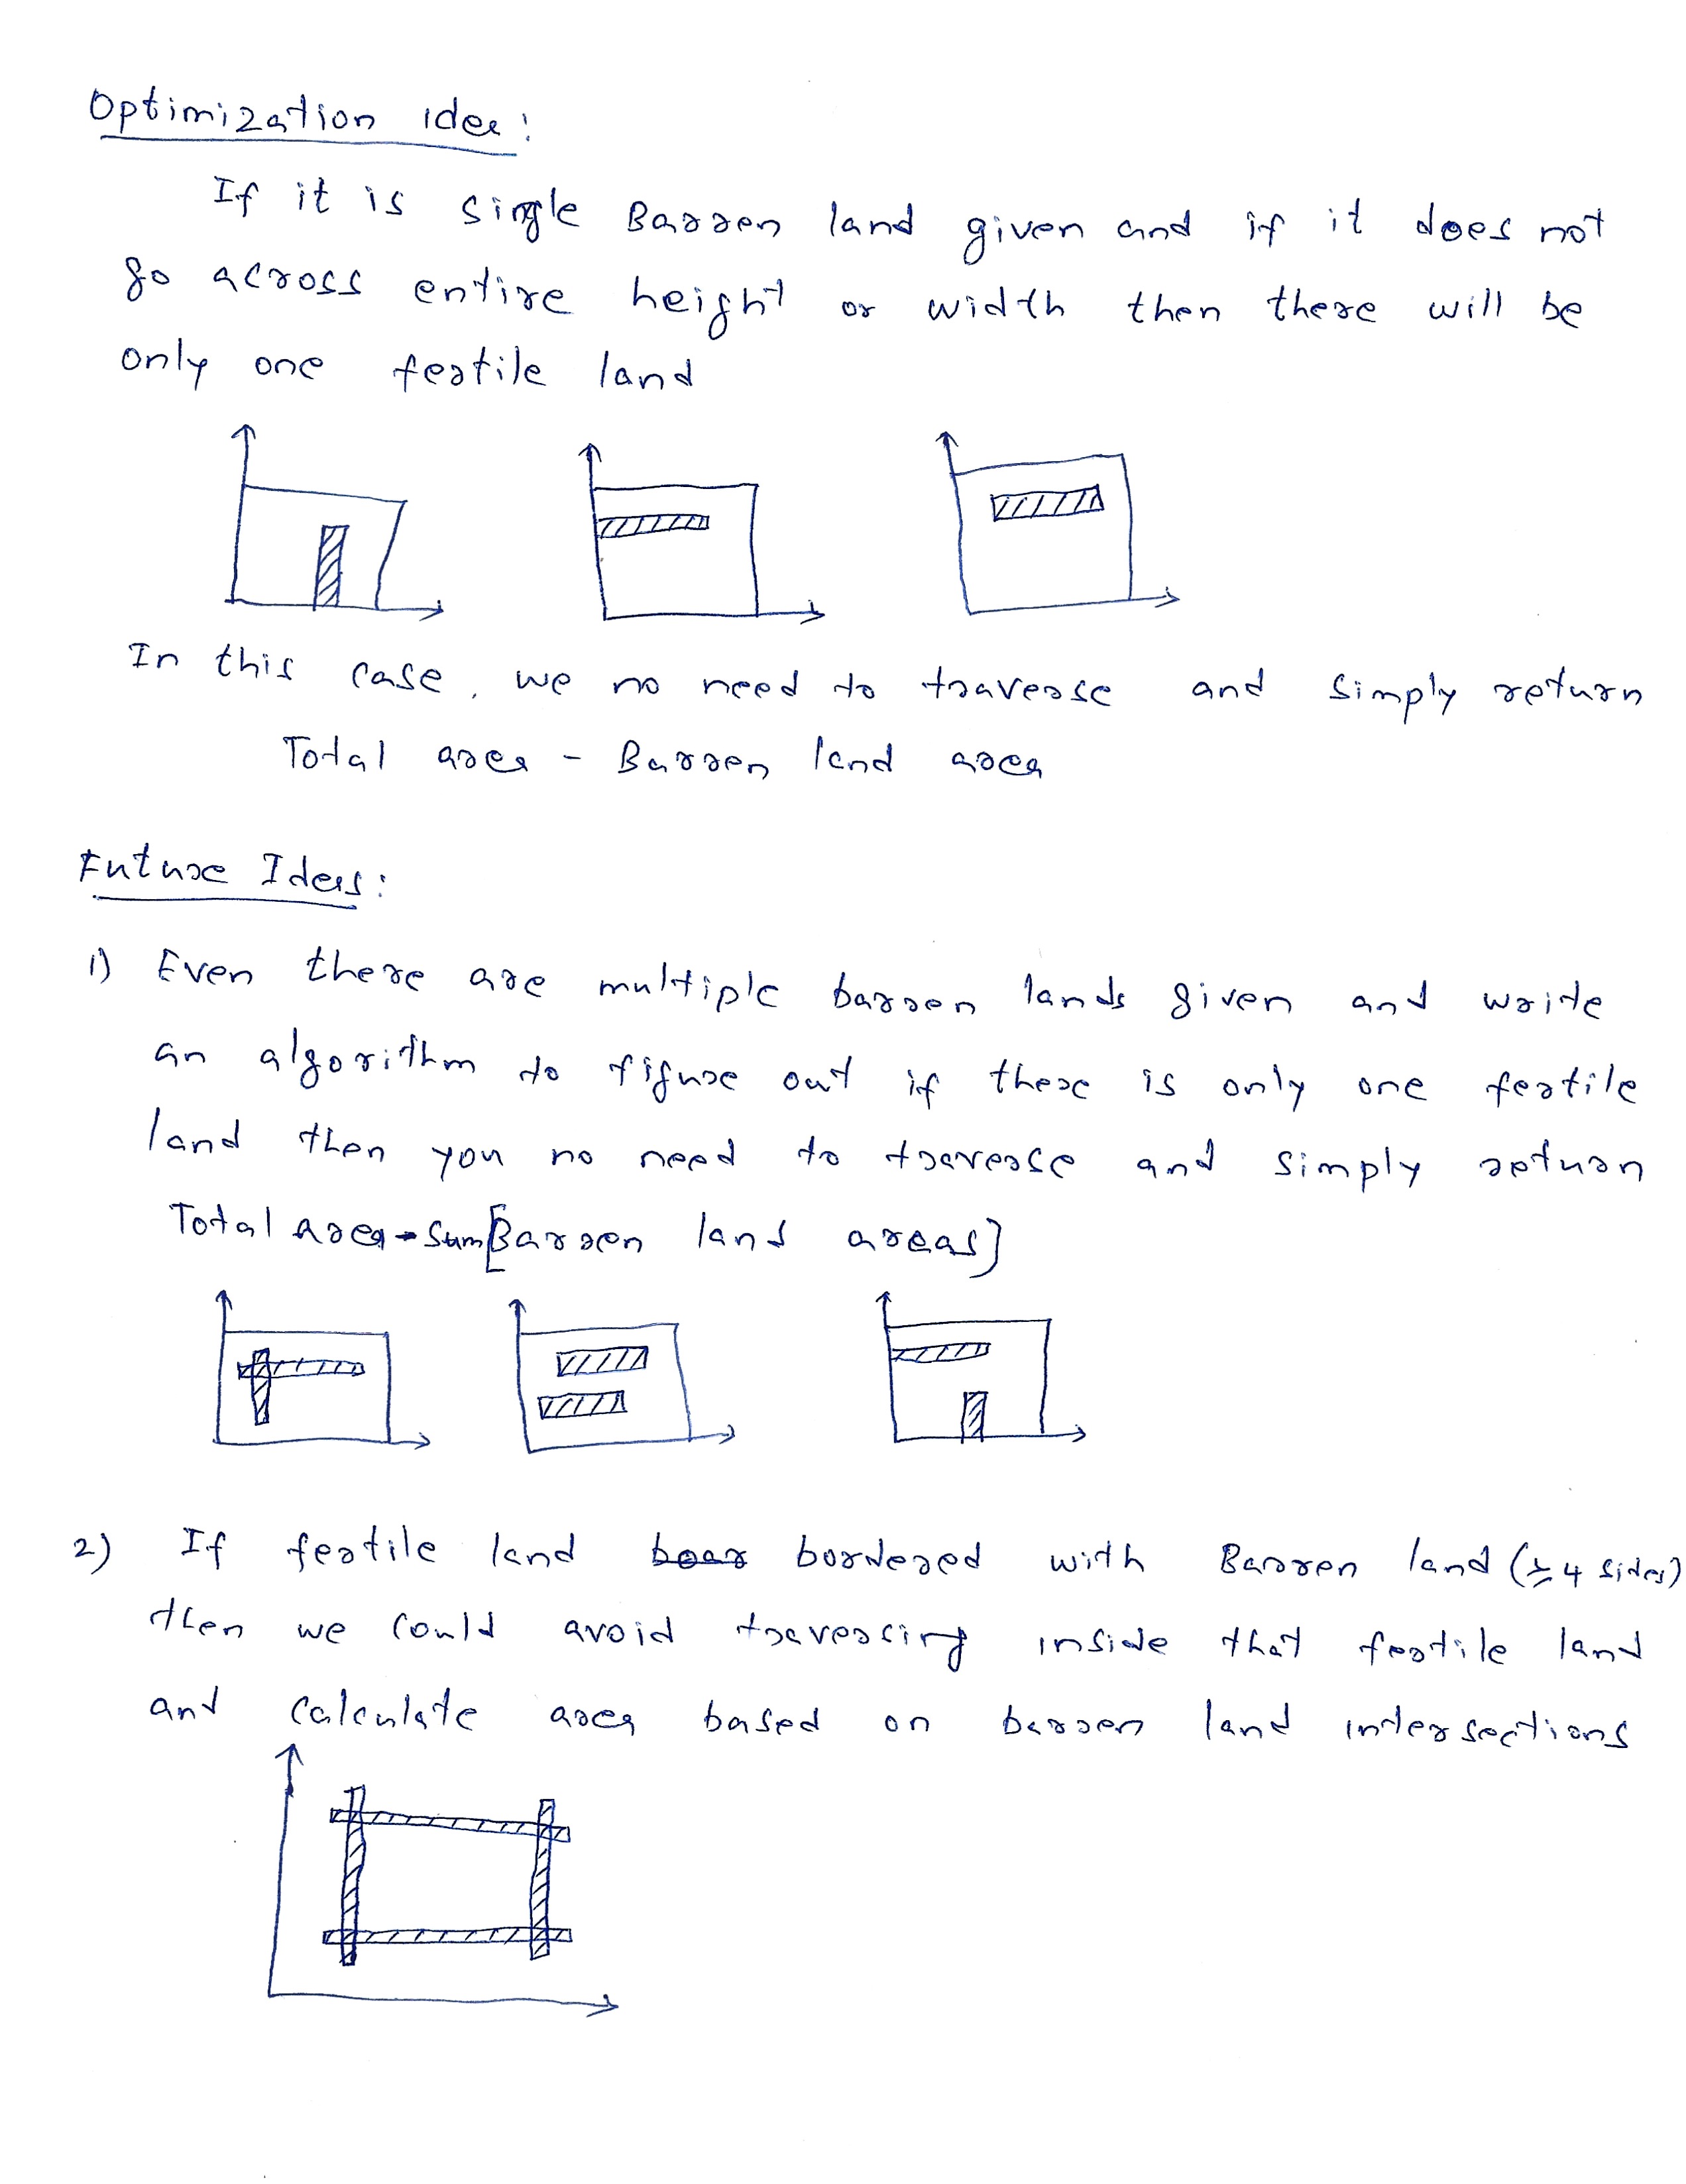 Optimization idea:
If it is single Barren land given and if it does not
go across entire height or width then there will be
only one fertile land
In this case, we no need to traverse and simply return
Total area - Barren land area
Future Ideas:
1) Even there are multiple barren lands given and write
an algorithm to figure out if there is only one fertile
land then you no need to traverse and simply return
Total area - Sum[Barren land areas]
2) If fertile land bordered with Barren land (≥ 4 sides)
then we could avoid traversing inside that fertile land
and calculate area based on barren land intersections